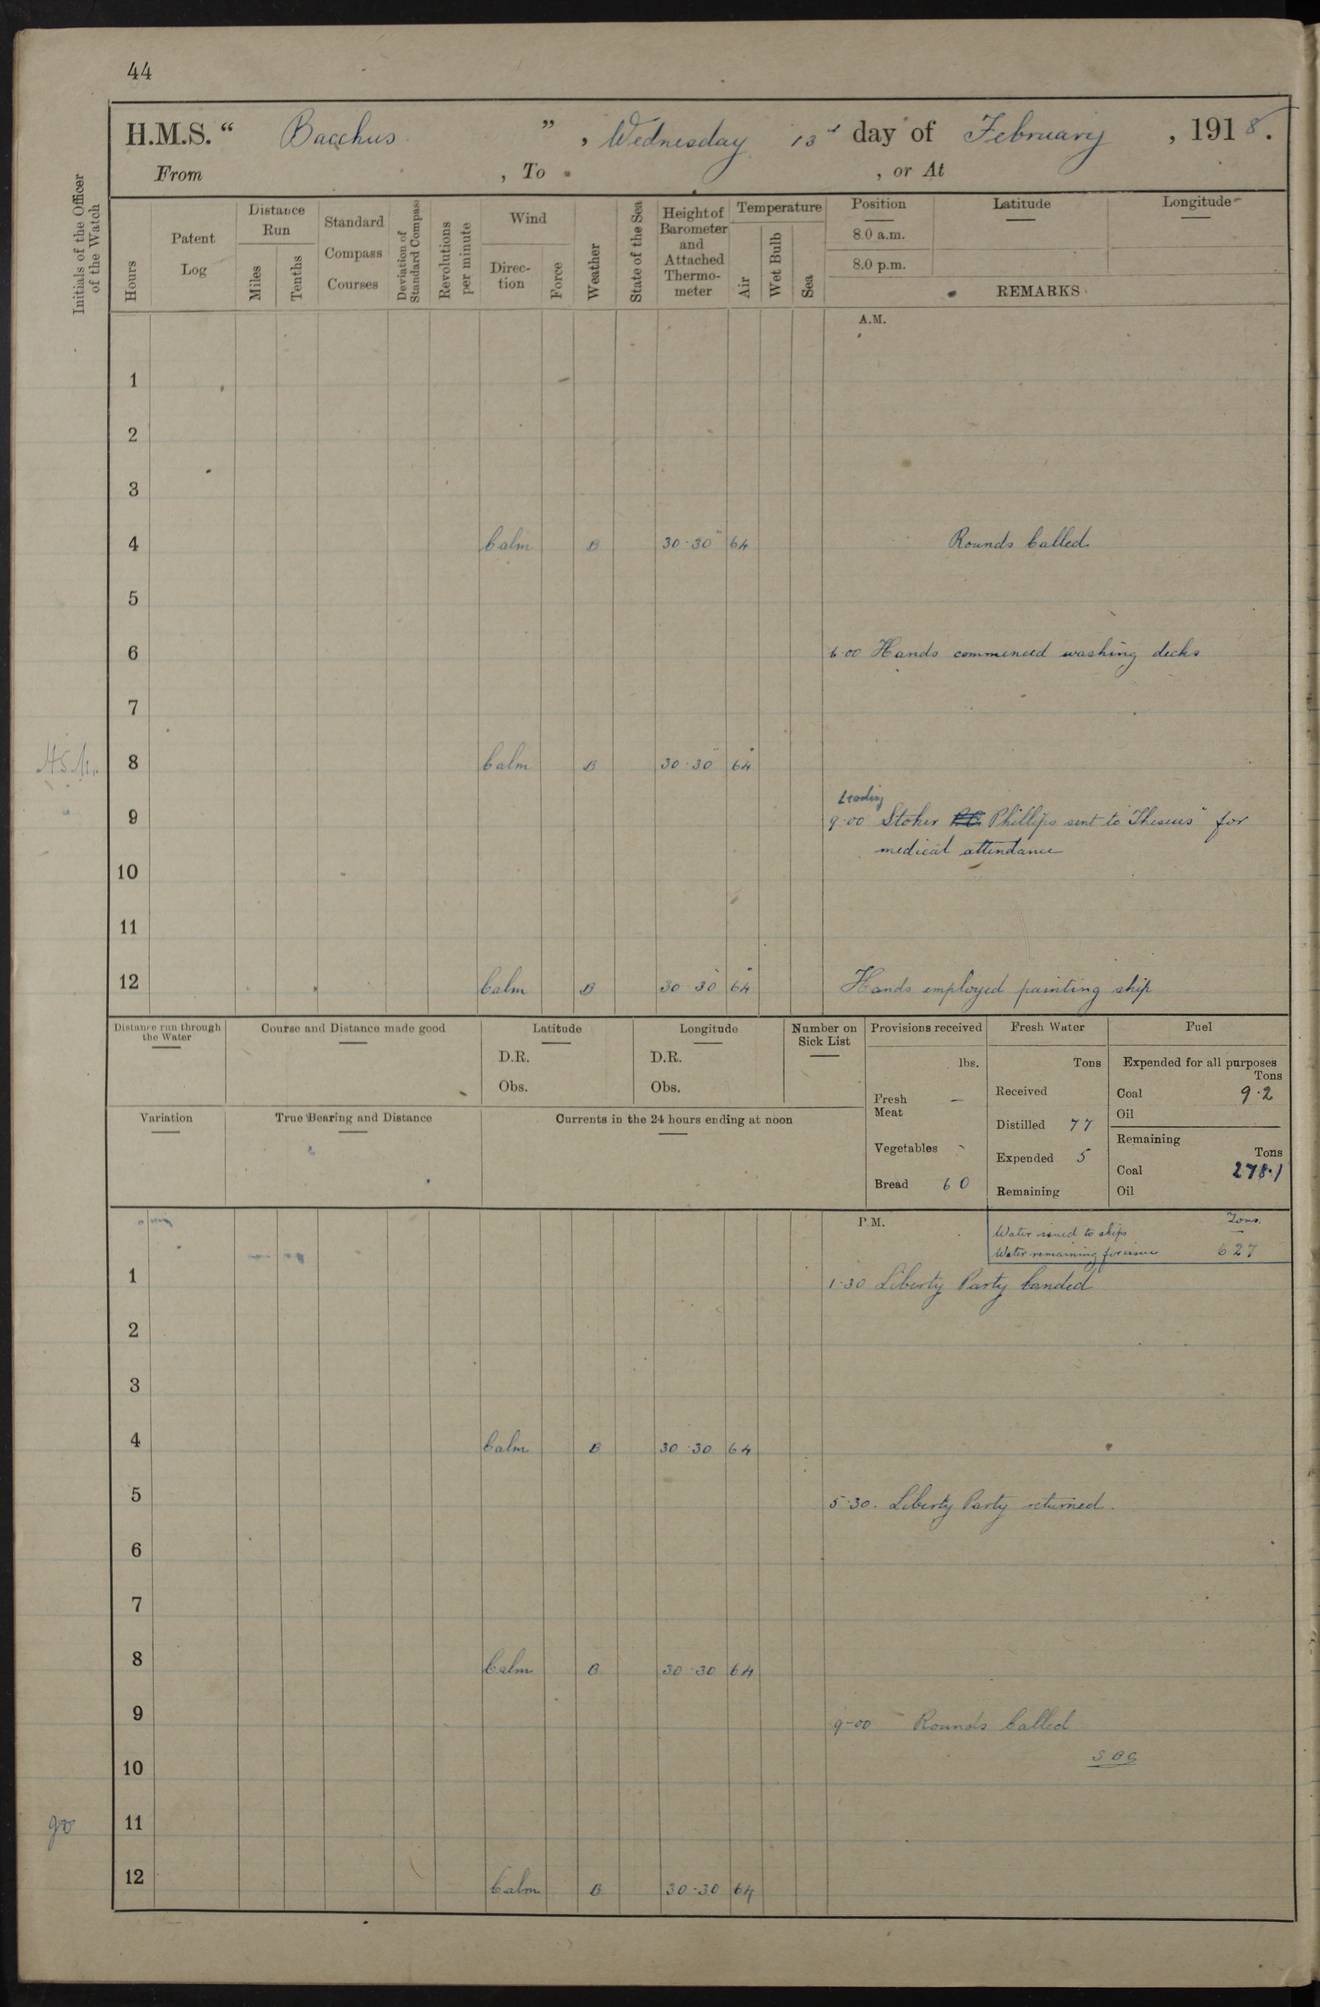 44
H.M.S. “ Bacchus ” , Wednesday 13 day of February , 1918.
From , To , or At
Initials of the Officer of the Watch
Hours
Patent Log
Distance Run
Miles
Tenths
Standard Compass Courses
Deviation of Standard Compass
Revolutions per minute
Wind
Direc-tion
Force
Weather
State of the Sea
Height of Barometer and Attached Thermo-meter
Temperature
Air
Wet Bulb
Sea
Position Latitude Longitude
8.0 a.m.
8.0 p.m.
REMARKS
A.M.
1
2
3
4 Calm B 30·30 64 Rounds Called
5
6 6·00 Hands commenced washing decks
7
8 Calm B 30·30 64
Leading
9 9·00 Stoker Phillips sent to "Theseus" for
medical attendance
10
11
12 Calm B 30·30 64 Hands employed painting ship
Distance run through the Water
Course and Distance made good
Latitude
D.R.
Obs.
Longitude
D.R.
Obs.
Number on Sick List
Variation
True Bearing and Distance
Currents in the 24 hours ending at noon
Provisions received
lbs.
Fresh Meat —
Vegetables -
Bread 60
Fresh Water
Tons
Received
Distilled 77
Expended 5
Remaining
Fuel
Expended for all purposes
Tons
Coal 9·2
Oil
Remaining
Tons
Coal 278·1
Oil
P.M.
Tons
Water issued to ships —
Water remaining for issue 627
1 1·30 Liberty Party landed
2
3
4 Calm B 30·30 64
5 5·30. Liberty Party returned.
6
7
8 Calm B 30·30 64
9 9-00 Rounds Called
10
11
12 Calm B 30·30 64